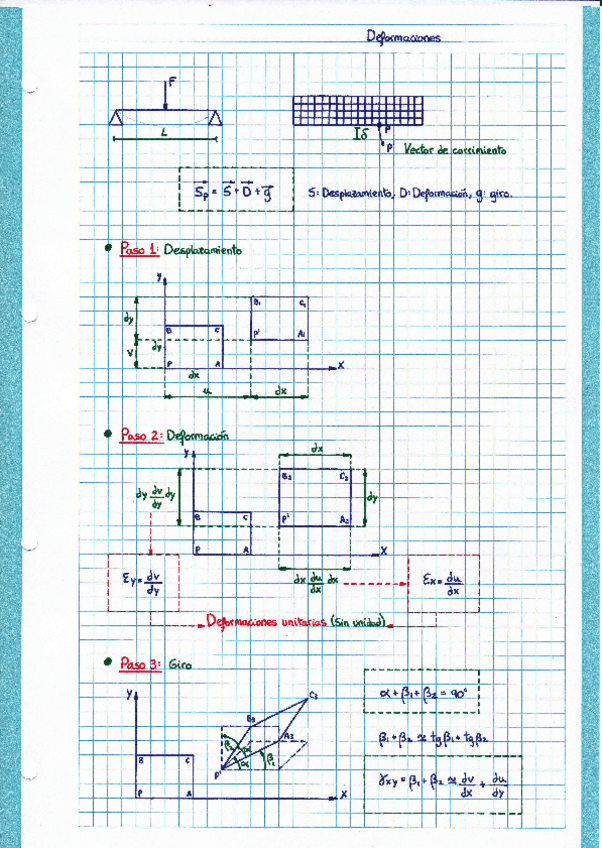 Deformaciones
F
L
Iδ
P
P'
Vector de corrimiento
S⃗p = S⃗ + D⃗ + g⃗
S: Desplazamiento, D: Deformación, g: giro.
Paso 1: Desplazamiento
y
B₁ C₁
dy
B C
P' A₁
v dy
P A
x
dx
u dx
Paso 2: Deformación
y
dx
B₂ C₂
dy dv/dy dy
dy
B C
P' A₂
P A
x
εy = dv/dy
dx du/dx dx
εx = du/dx
Deformaciones unitarias (sin unidad)
Paso 3: Giro
y
C₃
α + β₁ + β₂ = 90°
B₃
A₃
β₂ α
β₁ + β₂ ≈ tgβ₁ + tgβ₂
B C
α β₁
P'
γxy = β₁ + β₂ ≈ dv/dx + du/dy
P A
x